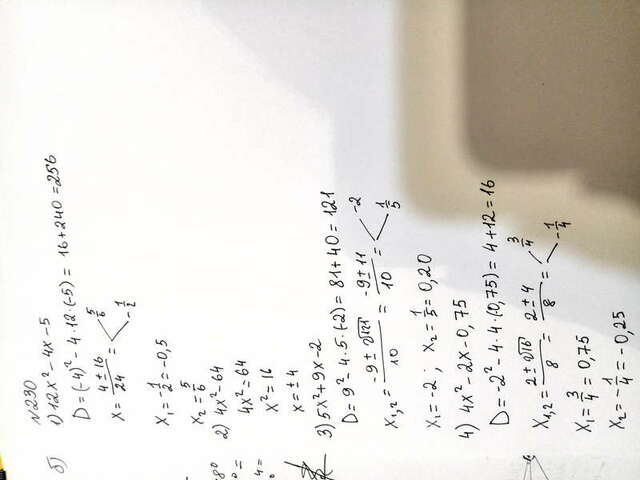 б)
N230
1) 12x² - 4x - 5
D = (-4)² - 4·12·(-5) = 16 + 240 = 256
x = 4 ± 16 / 24 = < 5/6 -1/2
x₁ = -1/2 = -0,5
x₂ = 5/6
2) 4x² - 64
4x² = 64
x² = 16
x = ± 4
3) 5x² + 9x - 2
D = 9² - 4·5·(-2) = 81 + 40 = 121
x₁,₂ = -9 ± √121 / 10 = -9 ± 11 / 10 = < -2 1/5
x₁ = -2 ; x₂ = 1/5 = 0,20
4) 4x² - 2x - 0,75
D = -2² - 4·4·(-0,75) = 4 + 12 = 16
x₁,₂ = 2 ± √16 / 8 = 2 ± 4 / 8 = < 3/4 -1/4
x₁ = 3/4 = 0,75
x₂ = -1/4 = -0,25